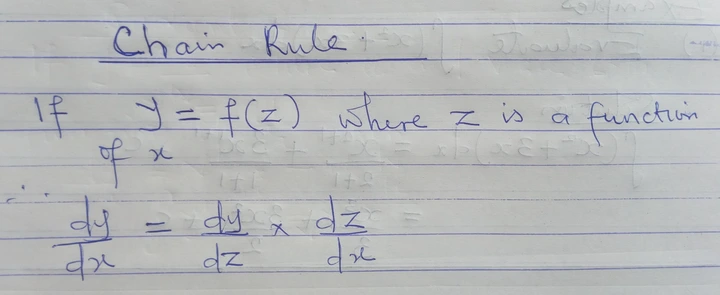 Chain Rule.
If y = f(z) where z is a function
of x
∴ dy/dx = dy/dz × dz/dx